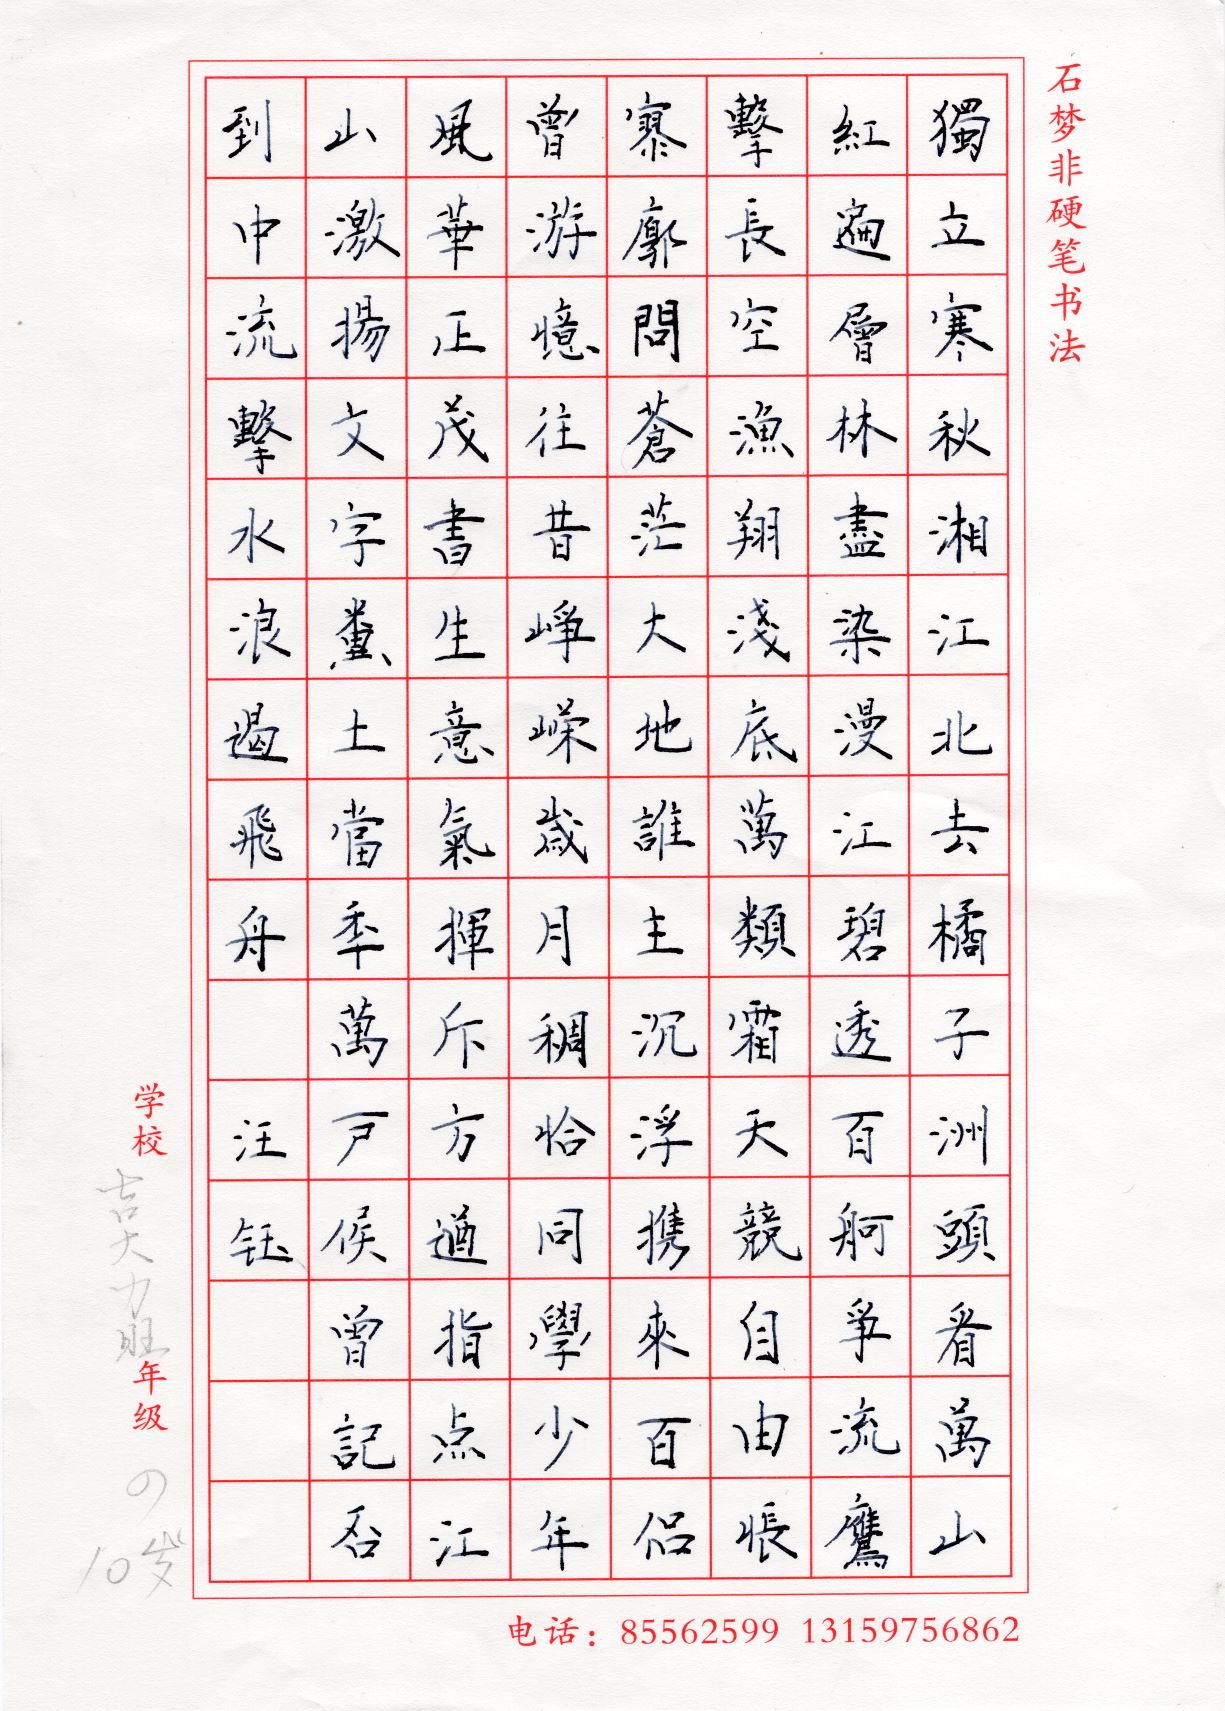 石梦非硬笔书法
獨立寒秋湘江北去橘子洲頭看萬山
紅遍層林盡染漫江碧透百舸爭流鷹
擊長空漁翔淺底萬類霜天競自由悵
寥廓問蒼茫大地誰主沉浮携來百侣
曾游憶往昔崢嶸歲月稠恰同學少年
風華正茂書生意氣揮斥方遒指点江
山激揚文字糞土當秊萬戸侯曾記否
到中流擊水浪遏飛舟 汪钰
学校 吉大力旺 年级 の
10岁
电话：85562599 13159756862